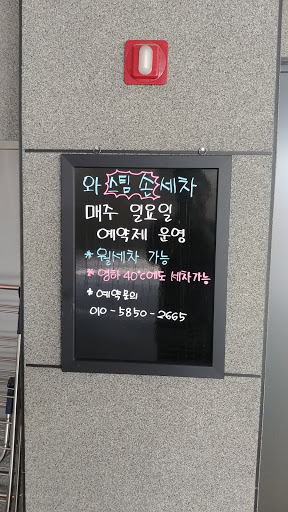 와 스팀 손 세차
매주 일요일
예약제 운영
* 월세차 가능
* 영하 40°c에도 세차가능
* 예약문의
010-5850-2665